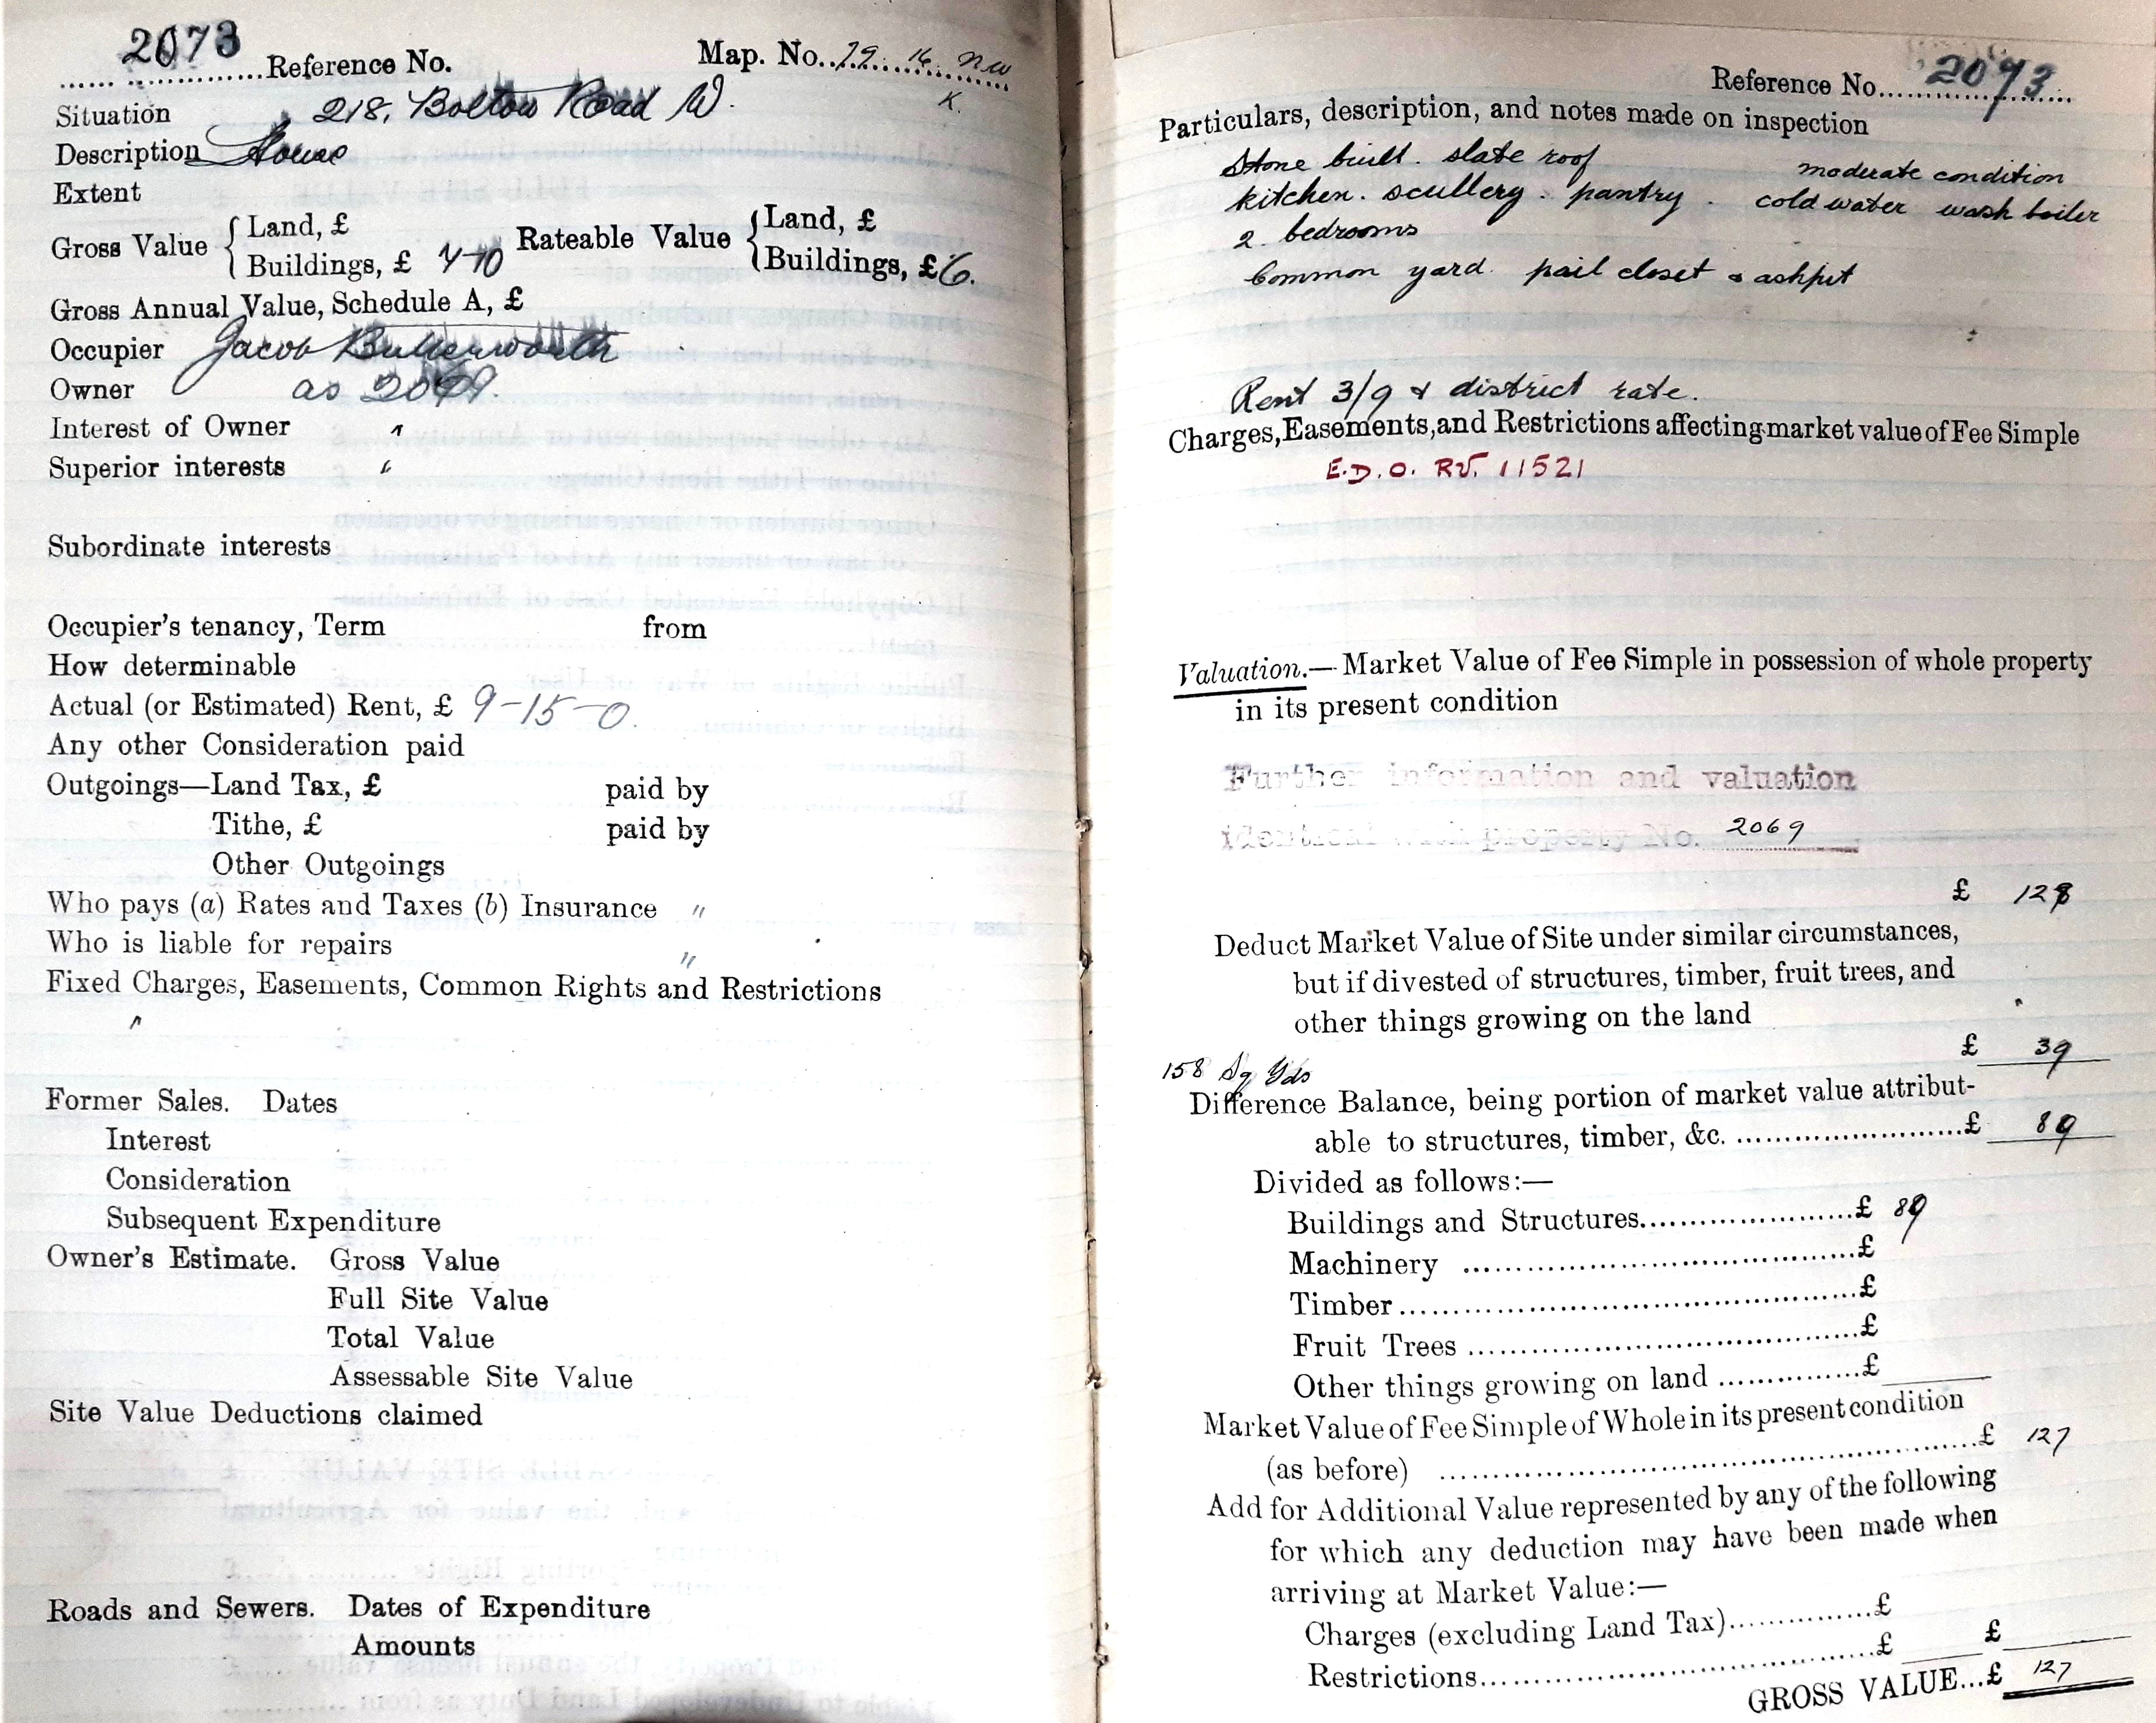 2073 Reference No. Map. No. 79 16 NW
K.
Situation 218, Bolton Road W.
Description House
Extent
Gross Value { Land, £
Buildings, £ 7-10
Rateable Value { Land, £
Buildings, £ 6.
Gross Annual Value, Schedule A, £
Occupier Jacob Butterworth
Owner as
Interest of Owner "
Superior interests "
Subordinate interests
Occupier's tenancy, Term from
How determinable
Actual (or Estimated) Rent, £ 9-15-0.
Any other Consideration paid
Outgoings—Land Tax, £ paid by
Tithe, £ paid by
Other Outgoings
Who pays (a) Rates and Taxes (b) Insurance "
Who is liable for repairs "
Fixed Charges, Easements, Common Rights and Restrictions
"
Former Sales. Dates
Interest
Consideration
Subsequent Expenditure
Owner's Estimate. Gross Value
Full Site Value
Total Value
Assessable Site Value
Site Value Deductions claimed
Roads and Sewers. Dates of Expenditure
Amounts
Reference No. 2073
Particulars, description, and notes made on inspection
Stone built. slate roof moderate condition
kitchen. scullery. pantry. cold water wash boiler
2 bedrooms
Common yard. pail closet & ashpit
Rent 3/9 & district rate.
Charges, Easements, and Restrictions affecting market value of Fee Simple
E.D.O. RV. 11521
Valuation.—Market Value of Fee Simple in possession of whole property
in its present condition
Further information and valuation
identical with property No. 2069
£ 128
Deduct Market Value of Site under similar circumstances,
but if divested of structures, timber, fruit trees, and
other things growing on the land
£ 39
158 Sq Yds
Difference Balance, being portion of market value attribut-
able to structures, timber, &c. £ 89
Divided as follows:—
Buildings and Structures £ 89
Machinery £
Timber £
Fruit Trees £
Other things growing on land £
Market Value of Fee Simple of Whole in its present condition
(as before) £ 127
Add for Additional Value represented by any of the following
for which any deduction may have been made when
arriving at Market Value:—
Charges (excluding Land Tax) £
Restrictions £ £
GROSS VALUE...£ 127